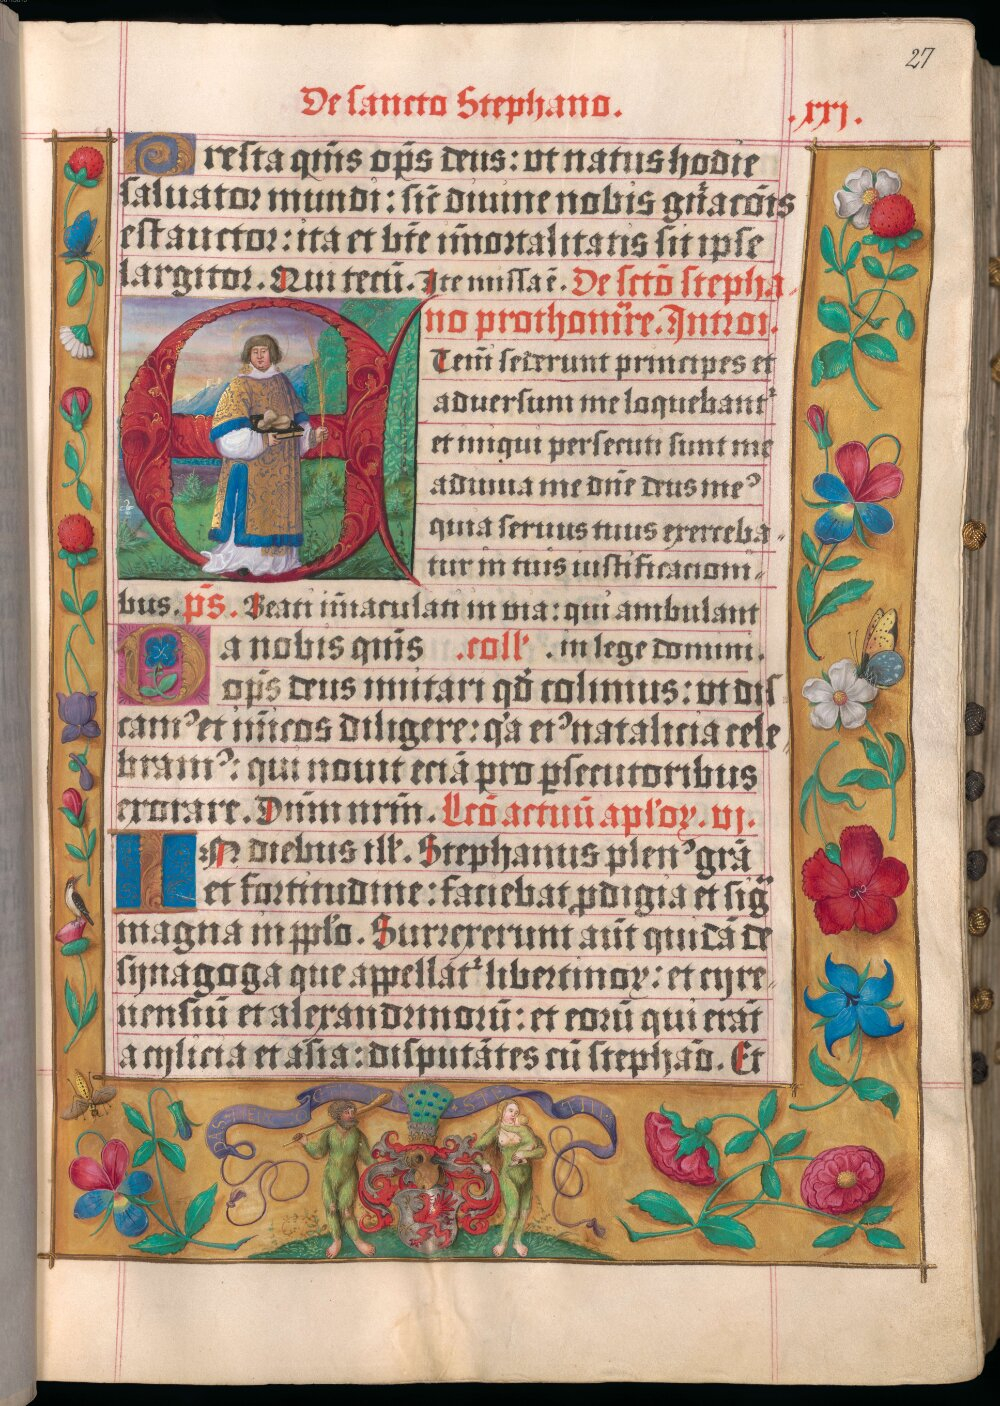 27
De sancto Stephano.
.xxj.
Presta qm̄s op̄s deus: vt natus hodie
saluator mundi: sic̄ diuine nobis gn̄ac̄oīs
est auctor: ita et bt̄e im̄ortalitatis sit ipse
largitor. Qui tecū. Ite missa ē. De sctō stepha-
no prothom̄re. Introi.
Etenī sederunt principes et
aduersum me loquebantr
et iniqui persecuti sunt me
adiuua me dn̄e deus meꝰ
quia seruus tuus exerceba-
tur in tuis iustificacioni-
bus. ps̄. Beati im̄aculati in via: qui ambulant
Da nobis quīs .coll'. in lege domini.
op̄s deus imitari qd̄ colimus: vt dis
camꝰ et inīcos diligere: q̇a eiꝰ natalicia cele
bramꝰ: qui nouit eciā pro ꝑsecutoribus
exorare. Dn̄m nrm̄. Lcō actuū apl'oꝝ. vj.
In diebus ill'. Stephanus plenꝰ gr̄a
et fortitudine: faciebat ꝓdigia et sig̅
magna in pp̄lo. Surrexerunt aūt quidā de
synagoga que appellatr libertinoꝝ: et cyre-
nensiū et alexandrinorū: et eorū qui erāt
a cylicia et asia: disputātes cū steph̄ao. Et